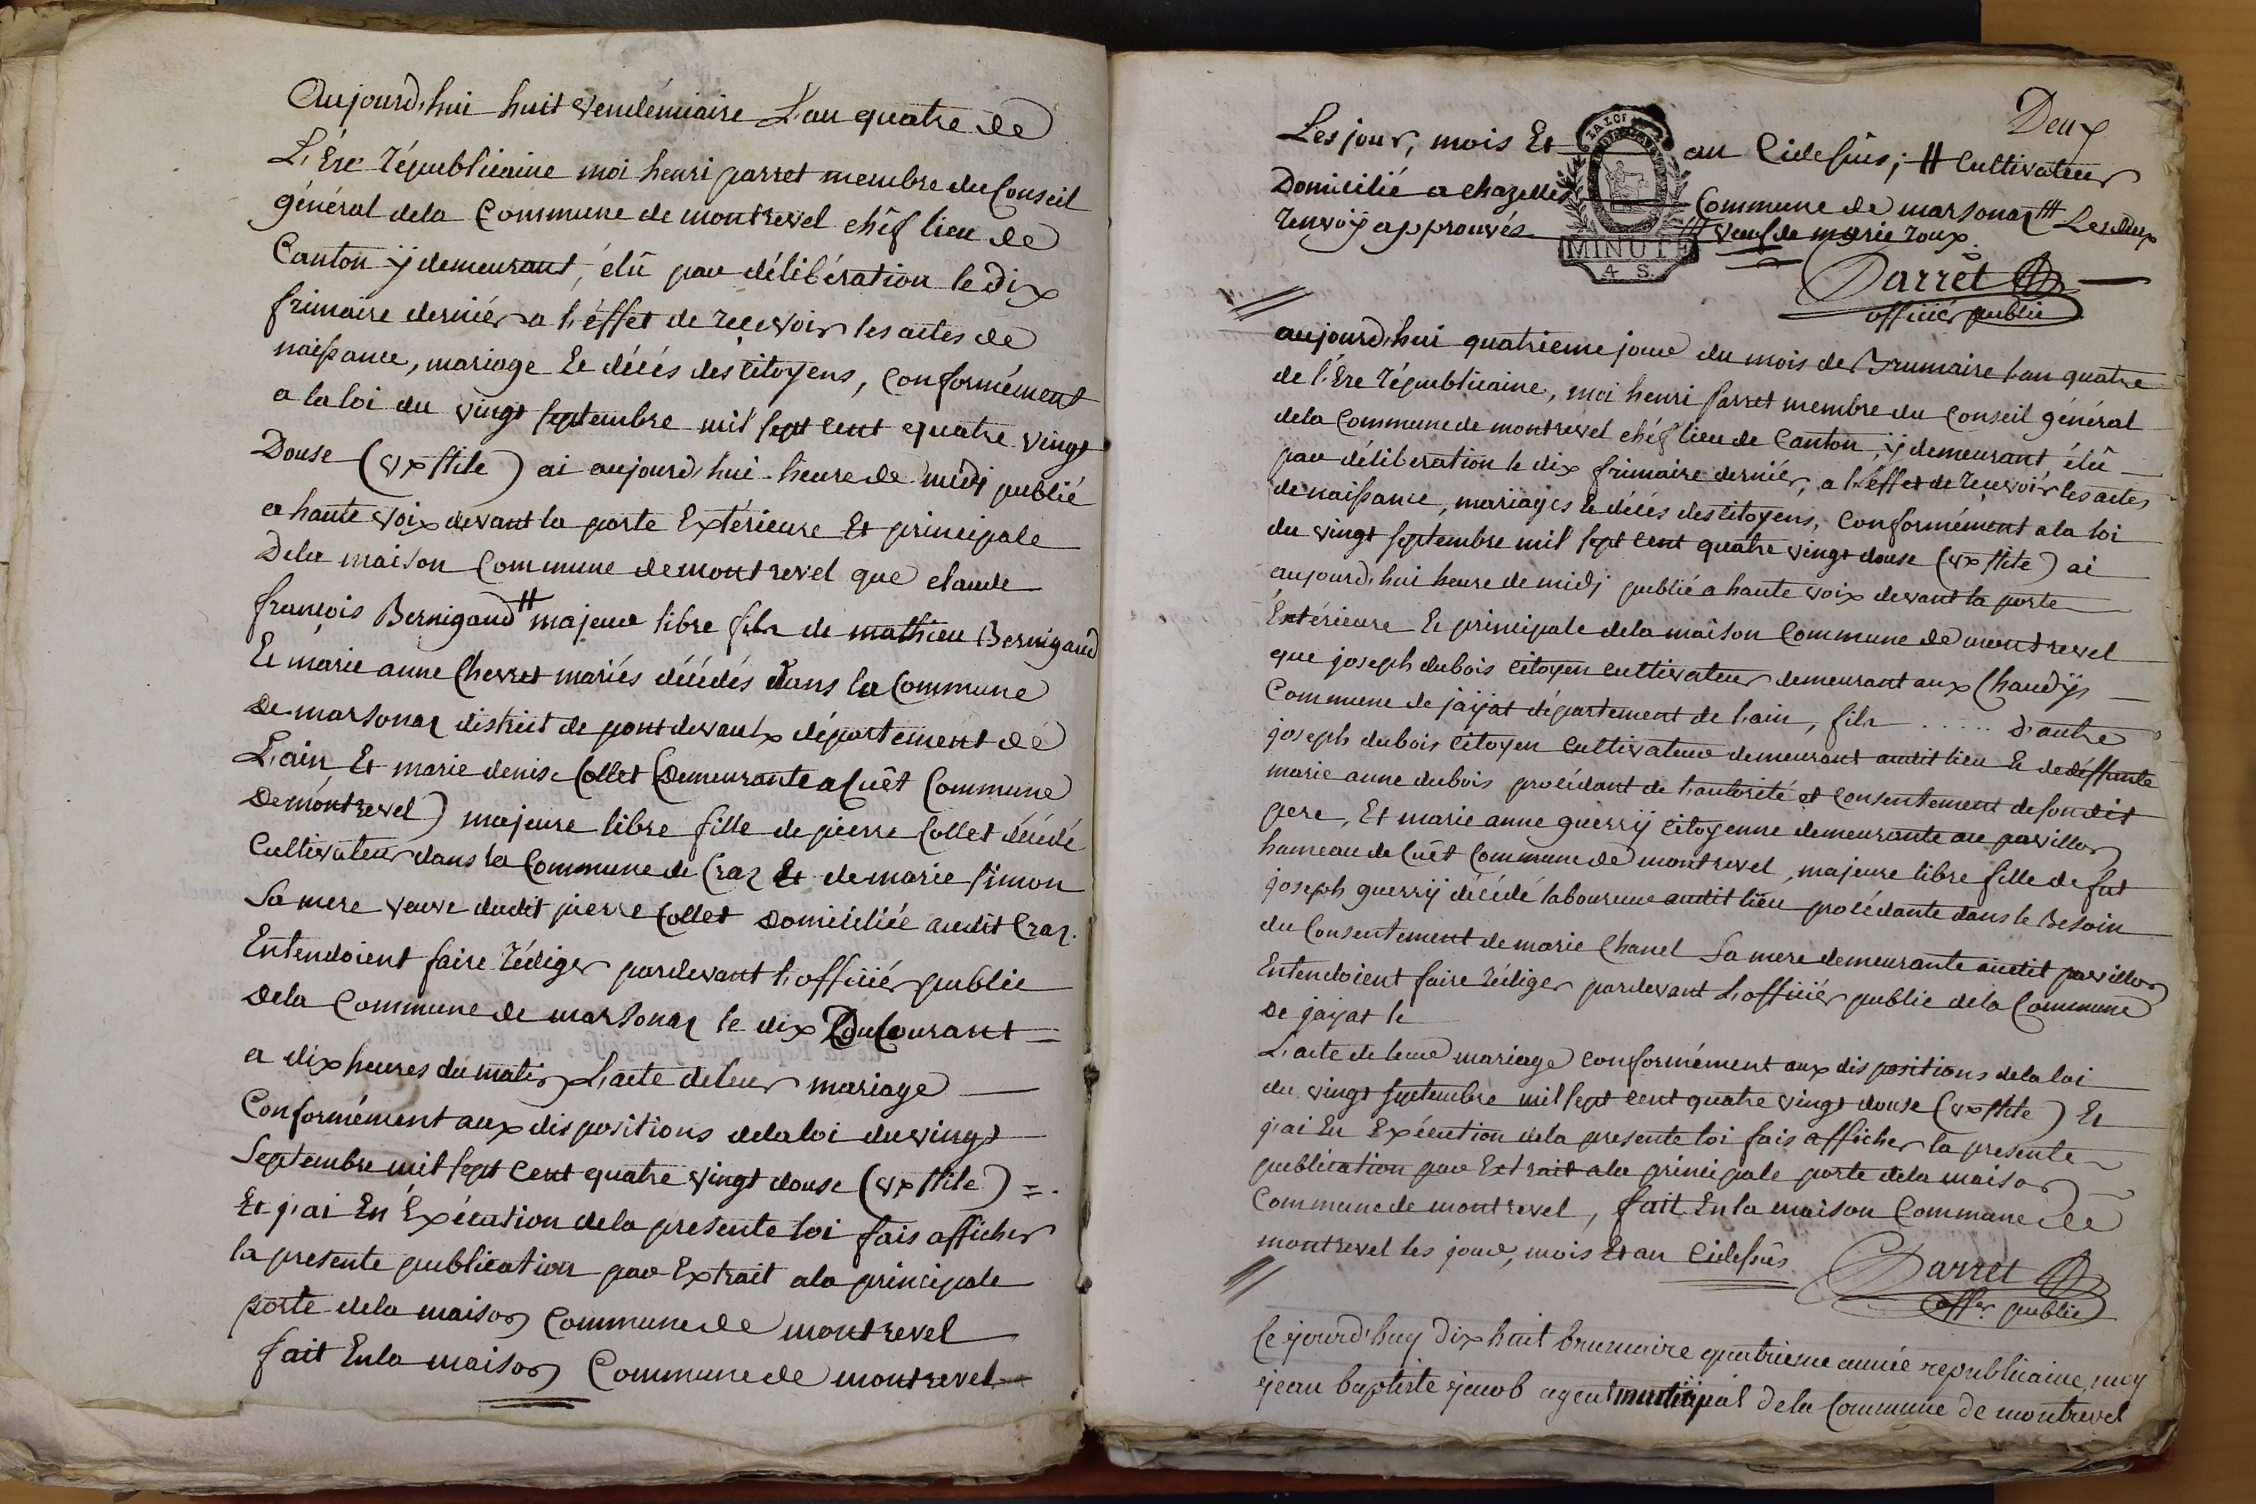 Aujourd'hui huit vendémiaire L'an quatre de
L'Ere républicaine moi henri parret membre du Conseil
général dela Commune de montrevel chéf lieu de
Canton ÿ demeurant, élû par délibération le dix
frimaire derniér a l'éffet de recevoir les actes de
naissance, mariage Et décés des Citoyens, Conformément
a la loi du vingt septembre mil sept cent quatre vingt
Douse (vx stile) ai aujourd'hui heure de midi publié
a haute voix devant la porte Extérieure Et principale
Dela maison Commune de montrevel que claude
françois Bernigaud # majeur libre fils de mathieu Bernigaud
Et marie anne Chevret mariés décédés dans la Commune
De marsonaz district de pont devaulx département de
L'ain Et marie denise Collet (Demeurante a Cuêt Commune
De montrevel) majeure libre fille de pierre Collet décédé
Cultivateur dans la Commune de Craz Et de marie simon
Sa mere veuve dudit pierre Collet Domiciliée audit Craz.
Entendoient faire rédiger pardevant l'officiér public
Dela Commune de marsonaz le dix Du Courant =
a dix heures du matin L'acte de leur mariage
Conformément aux dispositions dela loi du vingt
Septembre mil sept Cent quatre vingt douse (vx stile) =
Et j'ai En Exécution dela presente loi fais afficher
la presente publication par Extrait a la principale
porte dela maison Commune de montrevel
fait En la maison Commune de montrevel
Deux
Les jour, mois Et an Cidessus; # Cultivateur
Domicilié a Chazelles Commune de marsonaz ### Les deux
renvoÿ approuvés ### veuf de marie roux.
LA LOI
MINUTE
4 S.
Parret
officiér public
aujourd'hui quatrieme jour du mois de Brumaire l'an quatre
de l'Ere républicaine, moi henri parret membre du Conseil général
dela Commune de montrevel chéf lieu de Canton, ÿ demeurant, élû
par déliberation le dix frimaire derniér, a l'éffet de recevoir les actes
de naissance, mariages Et décés des Citoyens, Conformément a la loi
du vingt septembre mil sept Cent quatre vingt douse (vx stile) ai
aujourd'hui heure de midj publié a haute voix devant la porte
Extérieure Et principale dela maison Commune de montrevel
que joseph dubois Citoyen Cultivateur demeurant aux Chaudÿs
Commune de jaÿat département de l'ain, fils ..... d'autre
joseph dubois Citoyen Cultivateur demeurant audit lieu Et de déffunte
marie anne dubois procédant de l'autorité et Consentement de son dit
pere, Et marie anne guerrÿ Citoyenne demeurante au pavillon
hameau de Cuêt Commune de montrevel, majeure libre fille de fut
joseph guerrÿ décédé laboureur audit lieu procédante dans le Besoin
du Consentement de marie Chanel Sa mere demeurante audit pavillon
Entendoient faire rédiger pardevant L'officiér public dela Commune
De jaÿat le
L'acte de leur mariage Conformément aux dispositions dela loi
du vingt septembre mil sept Cent quatre vingt douse (vx stile) Et
j'ai En Exécution dela presente loi fais afficher la presente
publication par Extrait a la principale porte dela maison
Commune de montrevel, fait En la maison Commune de
montrevel les jour, mois Et an Cidessus
Parret
offer. public
Ce jourd'huy dix huit brumaire quatrieme année republicaine, moy
jean baptiste jacob agent municipal dela Commune de montrevel